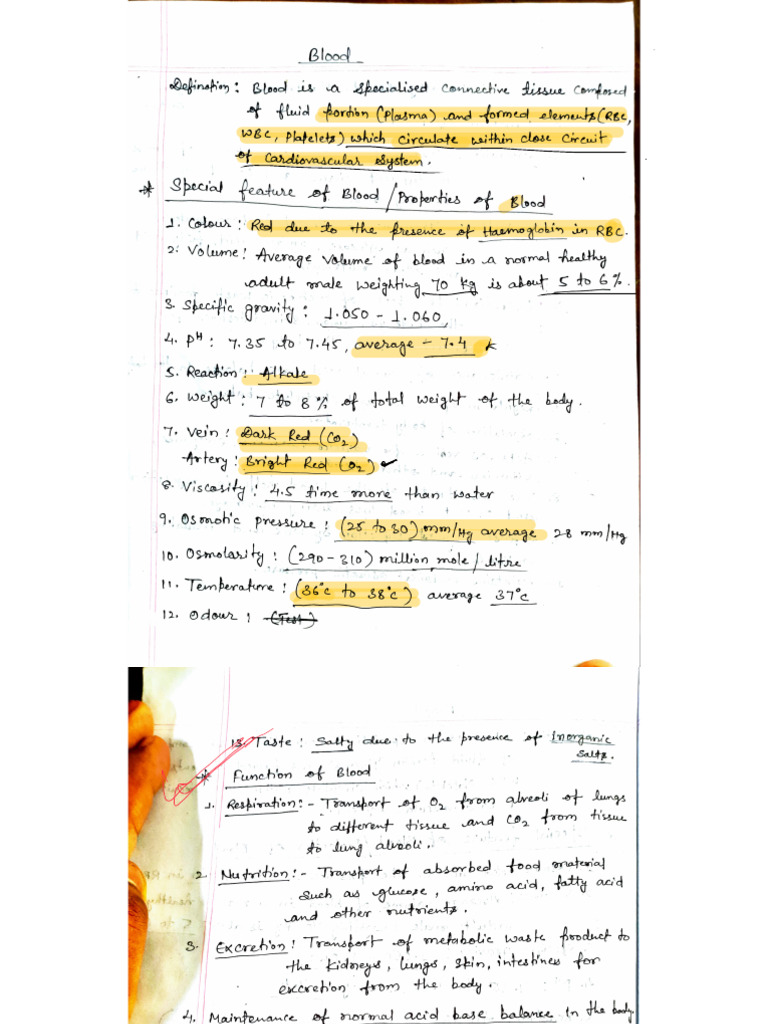 Blood
Defination: Blood is a Specialised Connective tissue Composed
of fluid portion (plasma) and formed elements (RBC,
WBC, Platelets) which circulate within close Circuit
of Cardiovascular System.
* Special feature of Blood / Properties of Blood
1. Colour: Red due to the presence of Haemoglobin in RBC.
2. Volume: Average Volume of blood in a normal healthy
adult male weighting 70 kg is about 5 to 6%.
3. Specific gravity: 1.050 - 1.060
4. PH: 7.35 to 7.45, average - 7.4
5. Reaction: Alkale
6. Weight: 7 to 8% of total weight of the body.
7. Vein: Dark Red (CO2)
Artery: Bright Red (O2) ✓
8. Viscosity: 4.5 time more than water
9. Osmotic pressure: (25 to 30) mm/Hg average 28 mm/Hg
10. Osmolarity: (290-310) million mole/litre
11. Temperature: (36°c to 38°c) average 37°c
12. Odour: (Test)
13. Taste: Salty due to the presence of inorganic
Salts.
* Function of Blood
1. Respiration:- Transport of O2 from alveoli of lungs
to different tissue and CO2 from tissue
to lung alveoli.
2. Nutrition:- Transport of absorbed food material
Such as glucose, amino acid, fatty acid
and other nutrients.
3. Excretion: Transport of metabolic waste product to
the kidneys, lungs, skin, intestines for
excretion from the body.
4. Maintenance of normal acid base balance in the body